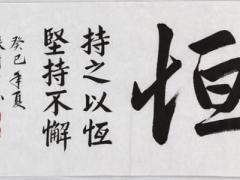 恒
持之以恒
堅持不懈
癸巳年夏